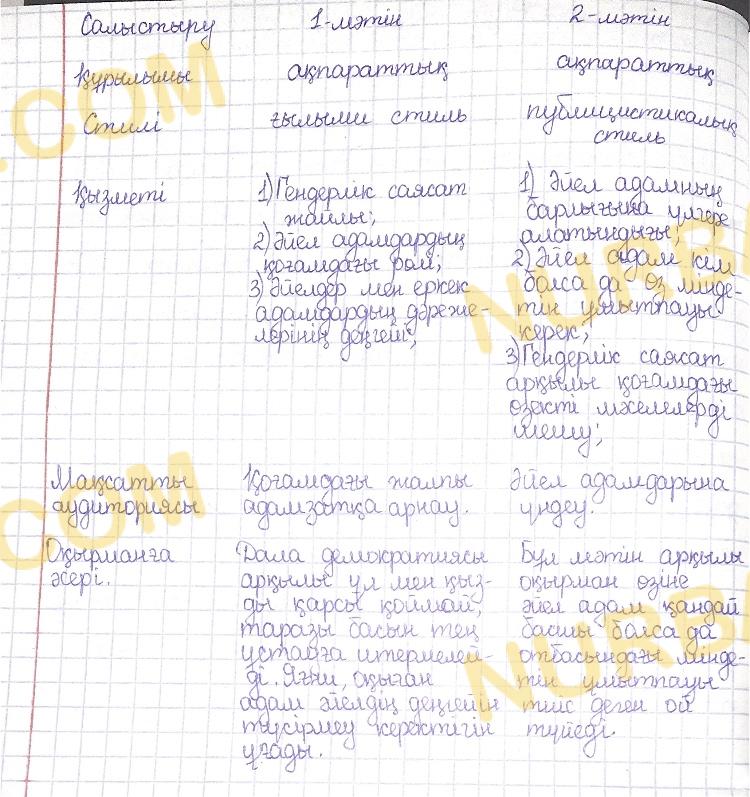 Салыстыру 1-мәтін 2-мәтін
Құрылымы ақпараттық ақпараттық
Стилі ғылыми стиль публицистикалық
стиль
Қызметі
1) Гендерлік саясат
жайлы;
2) Әйел адамдардың
қоғамдағы рөлі;
3) Әйелдер мен еркек
адамдардың дәреже-
лерінің деңгейі;
1) Әйел адамның
барлығына үлгере
алатындығы;
2) Әйел адам кім
болса да өз мінде-
тін ұмытпауы
керек;
3) Гендерлік саясат
арқылы қоғамдағы
өзекті мәселелерді
шешу;
Мақсатты
аудиториясы
Қоғамдағы жалпы
адамзатқа арнау.
Әйел адамдарына
үндеу.
Оқырманға
әсері.
Дала демократиясы
арқылы ұл мен қыз-
ды қарсы қоймай,
таразы басын тең
ұстауға итермелей-
ді. Яғни, оқыған
адам әйелдің деңгейін
түсірмеу керектігін
ұғады.
Бұл мәтін арқылы
оқырман өзіне
әйел адам қандай
басшы болса да
отбасындағы мінде-
тін ұмытпауы
тиіс деген ой
түйеді.
.COM
NURB
.COM
NURB